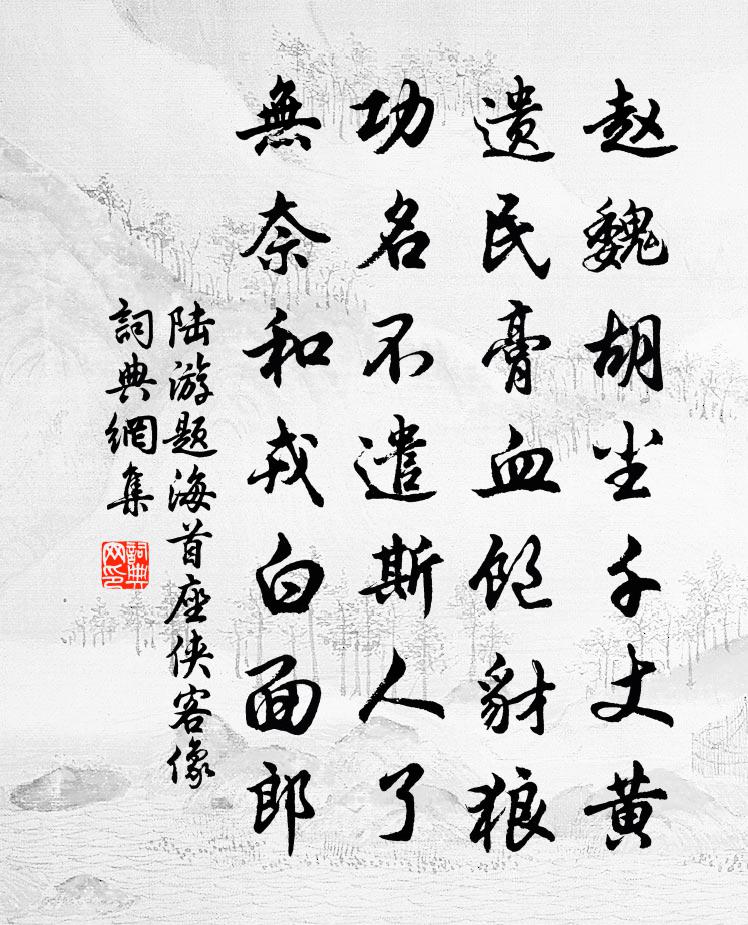 赵魏胡尘千丈黄
遗民膏血饱豺狼
功名不遣斯人了
無奈和戎白面郎
陆游题海首座侠客像
詞典網集
詞典网印